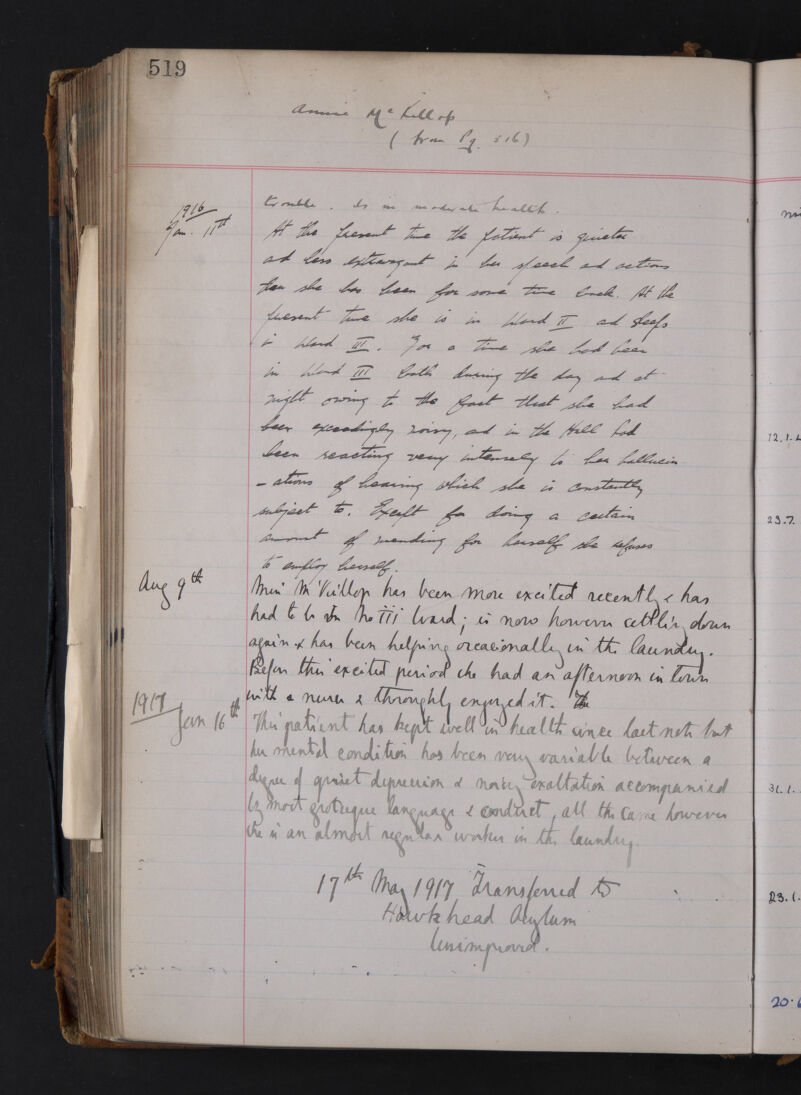 519
Annie McKillop
(from Pg. 516)
trouble. Is in moderate health.
1916
Jan. 11th
At the present time the patient is quieter
ad less extravagant in her speech ad actions
than she has been for some time back. At the
present time she is in Ward II ad sleeps
in Ward III. For a time she had been
in Ward III both during the day ad at
night owing to the fact that she had
been exceedingly noisy, ad in the Hall had
been reacting very intensely to her hallucin
-ations of hearing which she is constantly
subject to. Except for doing a certain
amount of mending for herself she refuses
to employ herself.
Aug 9th
Miss McKillop has been more excited recently & has
had to be in No III Ward; is now however settling down
again & has been helping occasionally in the laundry.
Before this excited period she had an afternoon in town
with a nurse & throughly enjoyed it. The
1917
Jan 16th
This patient has kept well in health since last note but
her mental condition has been very variable between a
degree of quiet depression & noisy exaltation accompanied
by most grotesque language & conduct, all the same however
she is an almost regular worker in the laundry.
17th May 1917 Transferred to
Hawkhead Asylum
Unimproved.
12.1.
23.7.
31.1.
23.1.
20.6